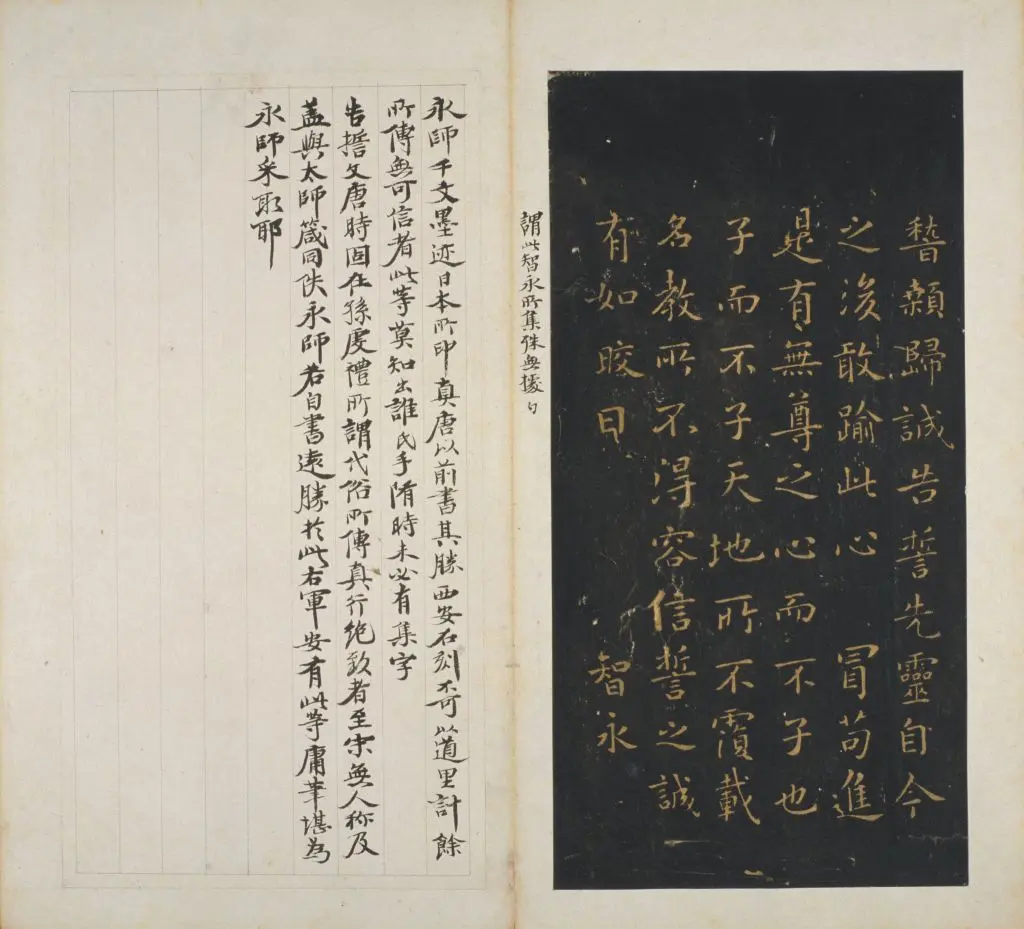 稽顙歸誠告誓先靈自今
之後敢踰此心 冒苟進
是有無尊之心而不子也
子而不子天地所不覆載
名教所不得容信誓之誠
有如皎日 智永
謂此智永所集殊無據
永師千文墨迹日本所印真唐以前書其勝西安石刻不可以道里計餘
所傳無可信者此等莫知出誰氏手隋時未必有集字
告誓文唐時固在孫虔禮所謂代俗所傳真行絶致者至宋無人称及
蓋與太師箴同佚永師若自書遠勝於此右軍安有此等庸筆堪為
永師采取耶